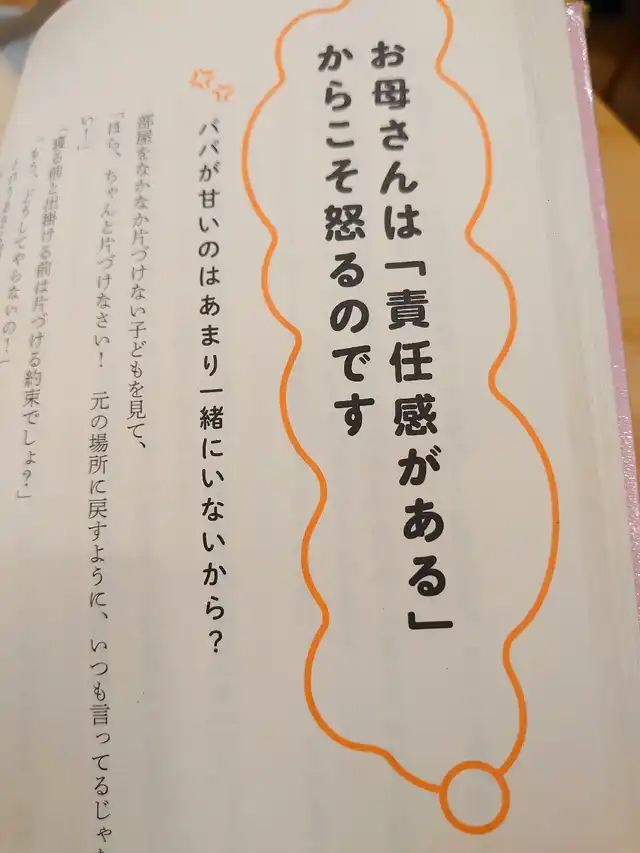 お母さんは「責任感がある」
からこそ怒るのです
パパが甘いのはあまり一緒にいないから?
部屋をなかなか片づけない子どもを見て、
「ほら、ちゃんと片づけなさい! 元の場所に戻すように、いつも言ってるじゃな
い!」
「寝る前と出掛ける前は片づける約束でしょ?」
「もう、どうしてやらないの!」